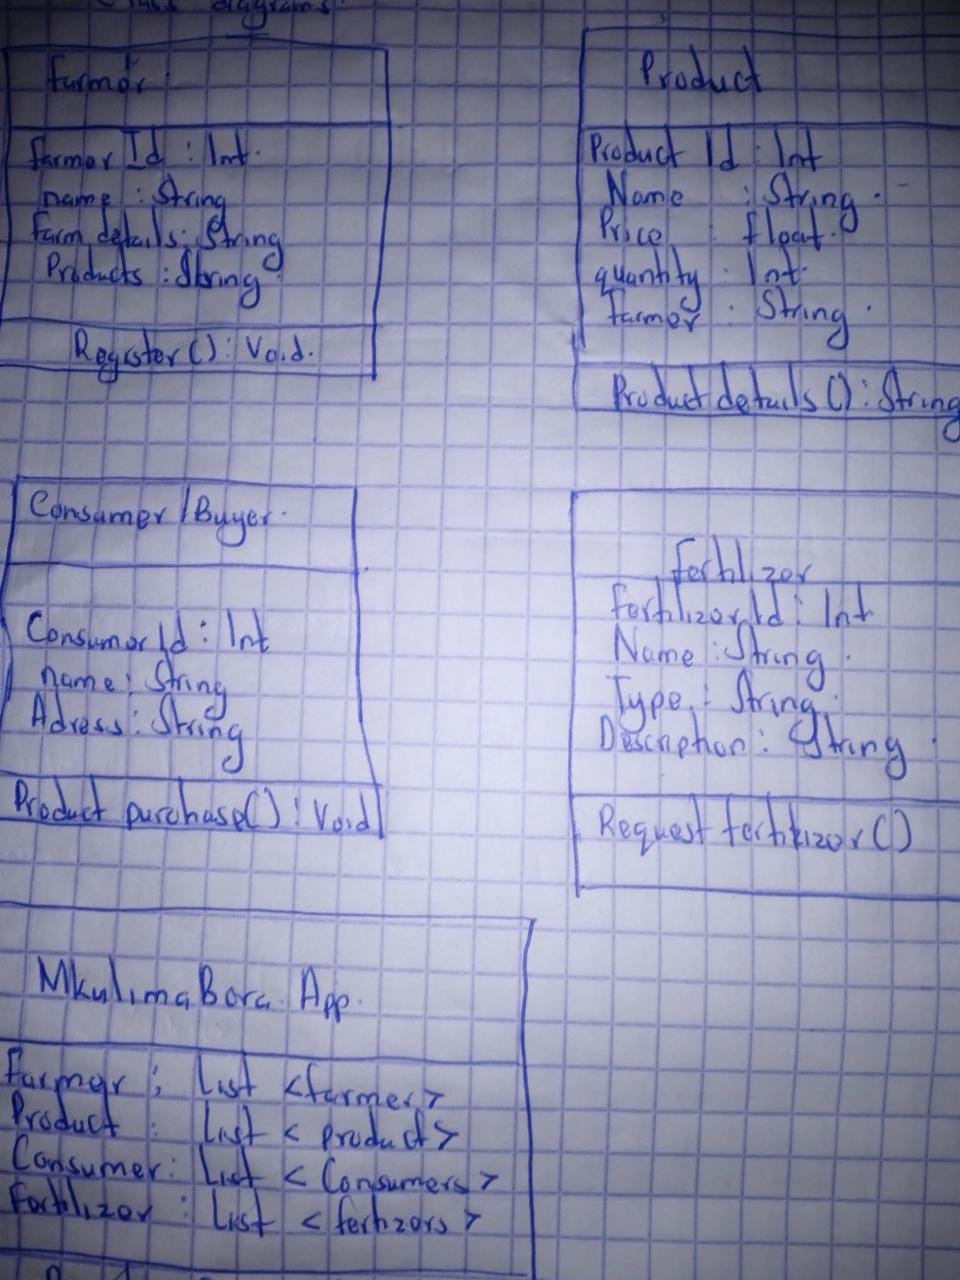 Class diagrams.
Farmer
Farmer Id : Int.
name : String
Farm details: String
Products : String
Register() : Void.
Product
Product Id : Int
Name : String.
Price : float.
quantity : Int.
farmer : String.
Product details() : String
Consumer / Buyer.
Consumer Id : Int
name : String
Adress : String
Product purchase() : Void
Fertilizer
Fertilizer Id : Int
Name : String.
Type : String.
Description : String.
Request fertilizer()
MkulimaBora App.
Farmer : List <farmer>
Product : List < product>
Consumer : List < Consumers >
Fertilizer : List < fertizers >